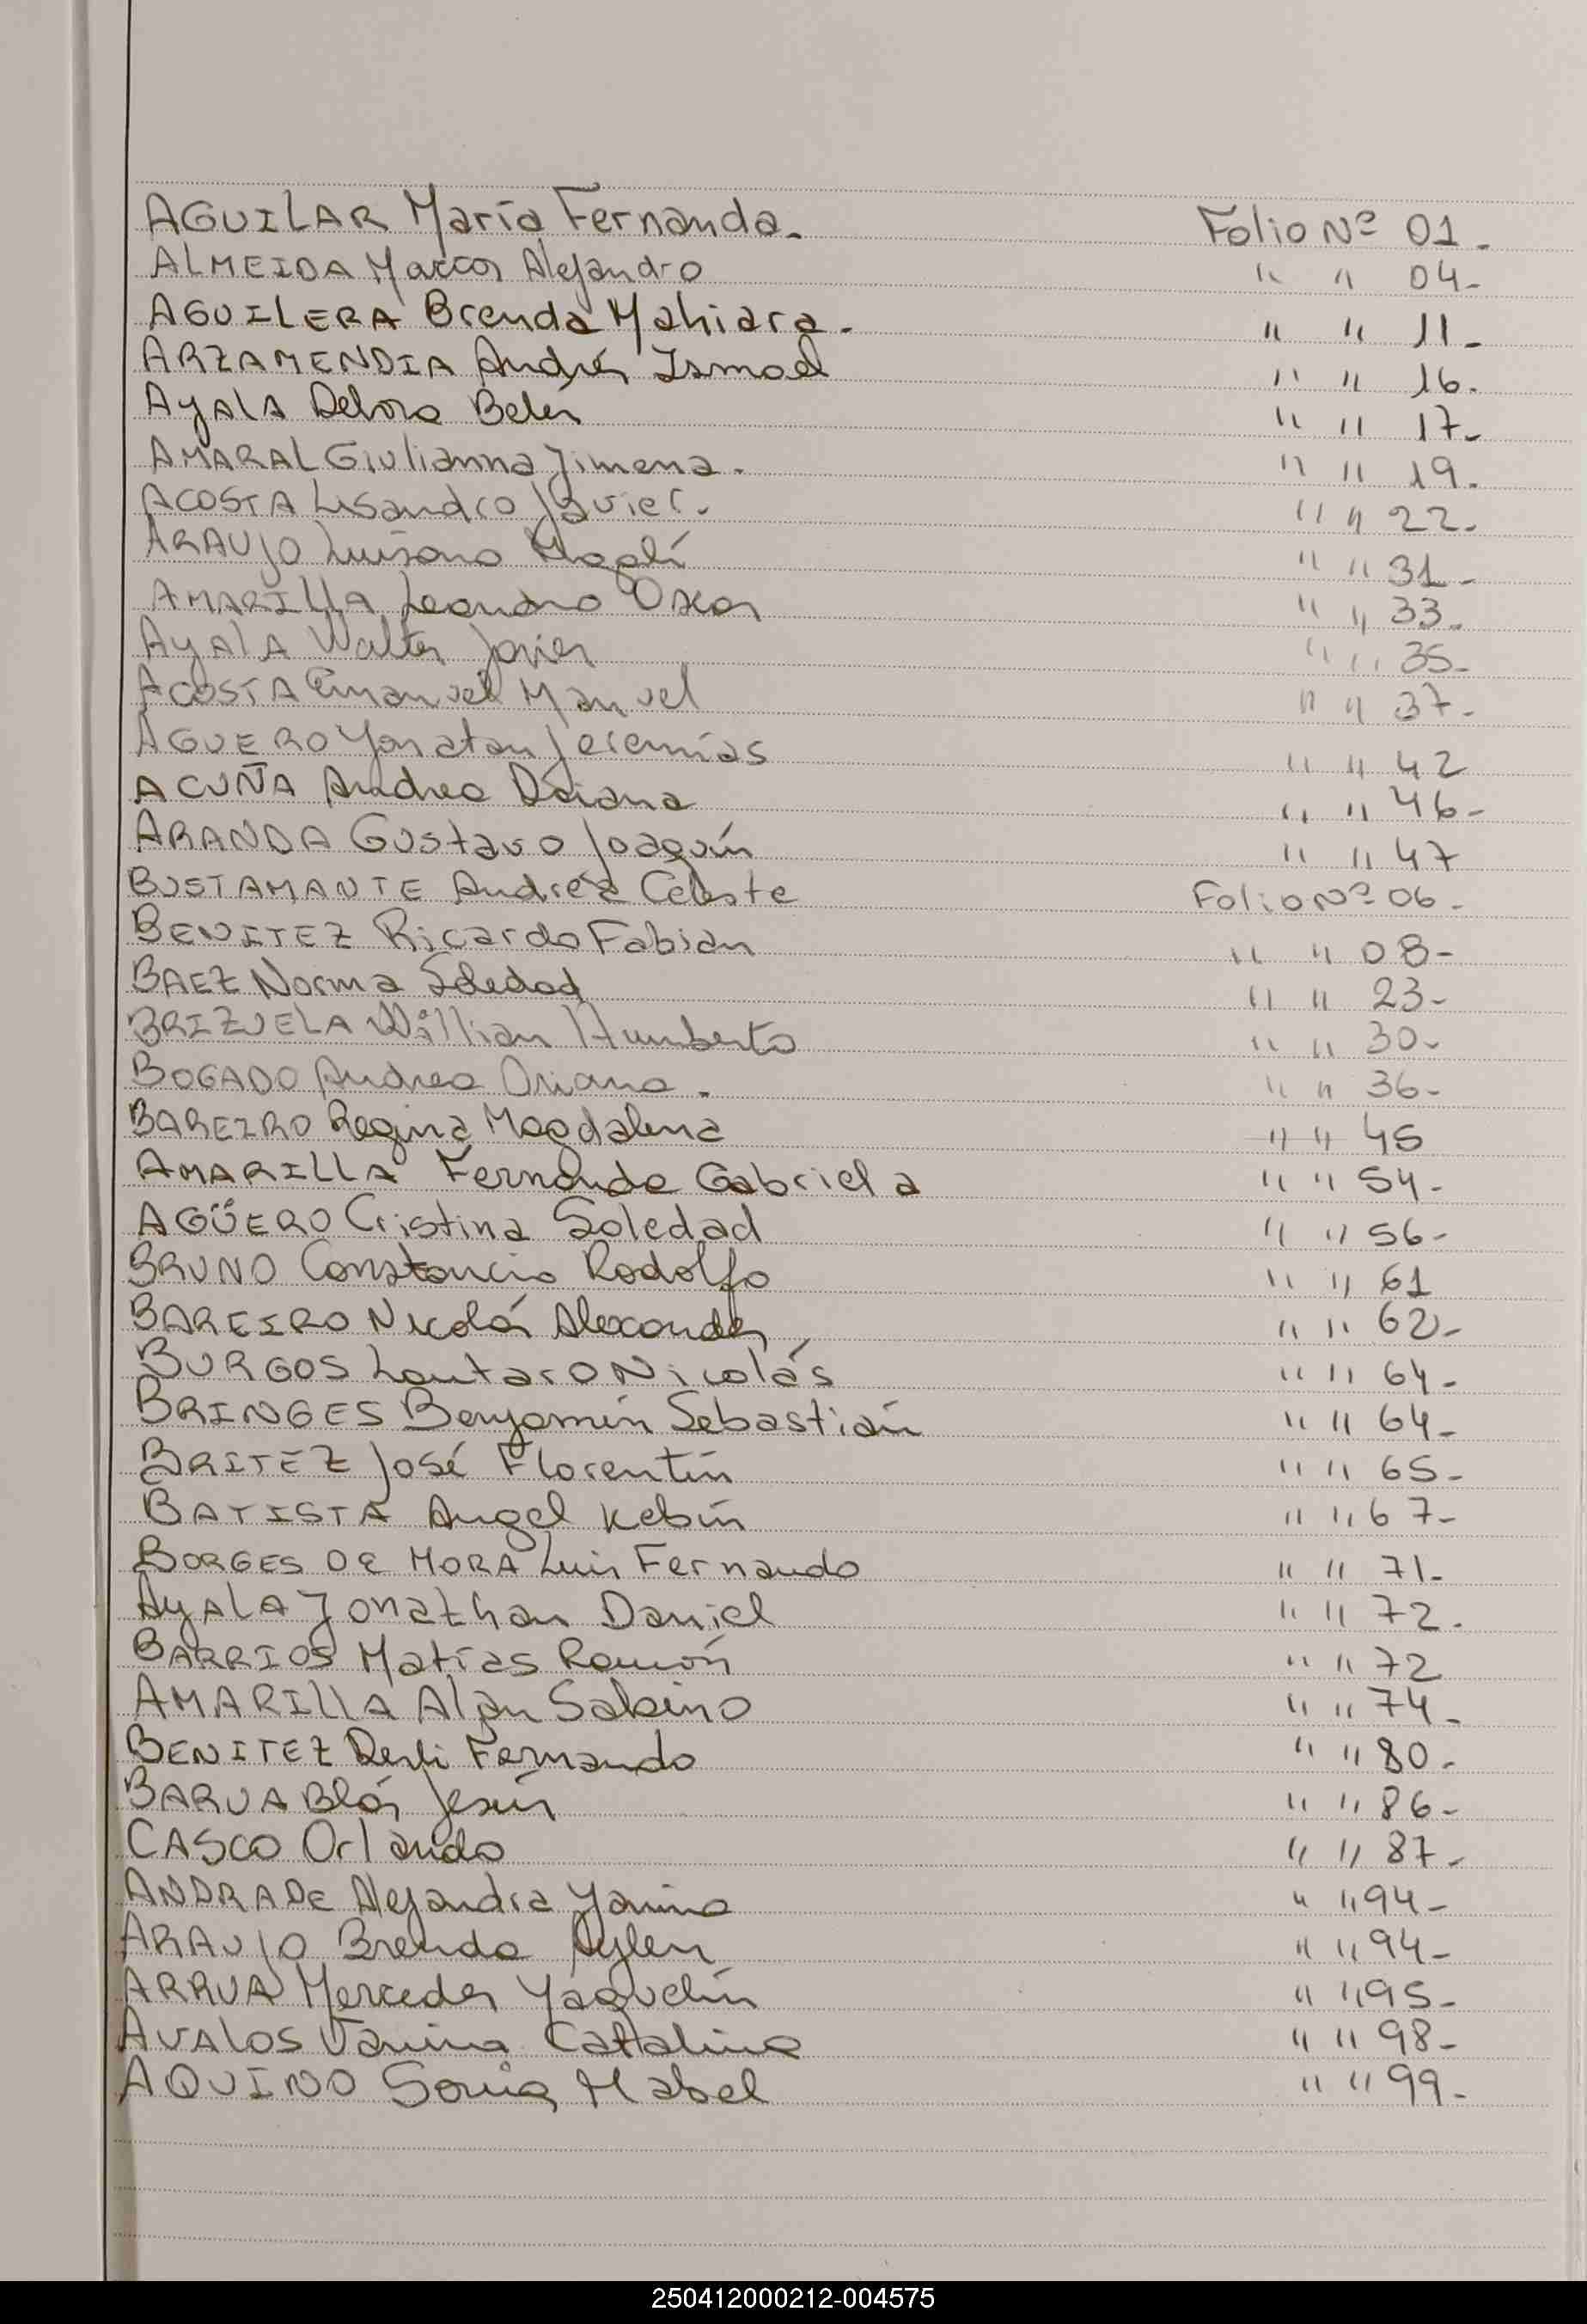 AGUILAR María Fernanda. Folio Nº 01.
ALMEIDA Marcos Alejandro " " 04-
AGUILERA Brenda Mahiara. " " 11-
ARZAMENDIA Andrés Ismael " " 16.
AYALA Debora Belén " " 17-
AMARAL Giulianna Jimena. " " 19.
ACOSTA Lisandro Javier. " " 22-
ARAUJO Luisana Magalí " " 31-
AMARILLA Leandro Oscar " " 33.
AYALA Walter Javier " " 35-
ACOSTA Emanuel Manuel " " 37-
AGUERO Yonatan Jeremías " " 42
ACUÑA Andrea Daiana " " 46-
ARANDA Gustavo Joaquín " " 47
BUSTAMANTE Andrea Celeste Folio Nº 06-
BENITEZ Ricardo Fabián " " 08-
BAEZ Norma Soledad " " 23-
BRIZUELA Willian Humberto " " 30-
BOGADO Andrea Oriana. " " 36-
BAREIRO Regina Magdalena " " 45
AMARILLA Fernanda Gabriela " " 54-
AGÜERO Cristina Soledad " " 56-
BRUNO Constancio Rodolfo " " 61
BAREIRO Nicolás Alexander " " 62-
BURGOS Lautaro Nicolás " " 64-
BRINGES Benjamín Sebastián " " 64-
BRITEZ José Florentín " " 65-
BATISTA Angel Kebin " " 67-
BORGES DE MORA Luis Fernando " " 71-
AYALA Jonathan Daniel " " 72.
BARRIOS Matías Ramón " " 72
AMARILLA Alan Sabino " " 74-
BENITEZ Derli Fernando " " 80-
BARUA Blás Jesús " " 86-
CASCO Orlando " " 87-
ANDRADE Alejandra Yanina " " 94-
ARAUJO Brenda Aylen " " 94-
ARRUA Mercedes Yaquelín " " 95-
AVALOS Vanina Catalina " " 98-
AQUINO Sonia Mabel " " 99-
250412000212-004575